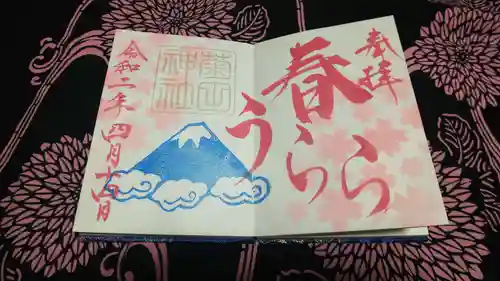 奉拝
春
うらら
神社
令和二年四月十六日